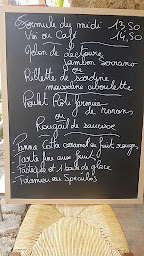 Formule du midi 13,50
Vin ou Café 14,50
Melon de
jambon Serrano
ou
Rillette de sardine
ciboulette
Poulet Rôti fermier
ou de
Rougail de saucisse
Panna Cotta caramel ou fruit rouge
Tarte fine aux fruits
et 1 boule de glace
Tiramisu au Speculos